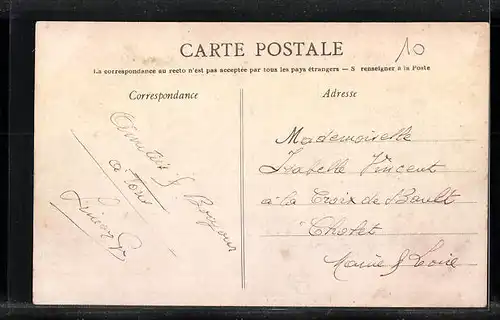 CARTE POSTALE
10
La correspondance au recto n'est pas acceptée par tous les pays étrangers — S renseigner à la Poste
Correspondance
Adresse
Amitiés & Bonjour
à tous
Mademoiselle
Isabelle Vincent
à la Croix de Bault
Cholet
Maine & Loire